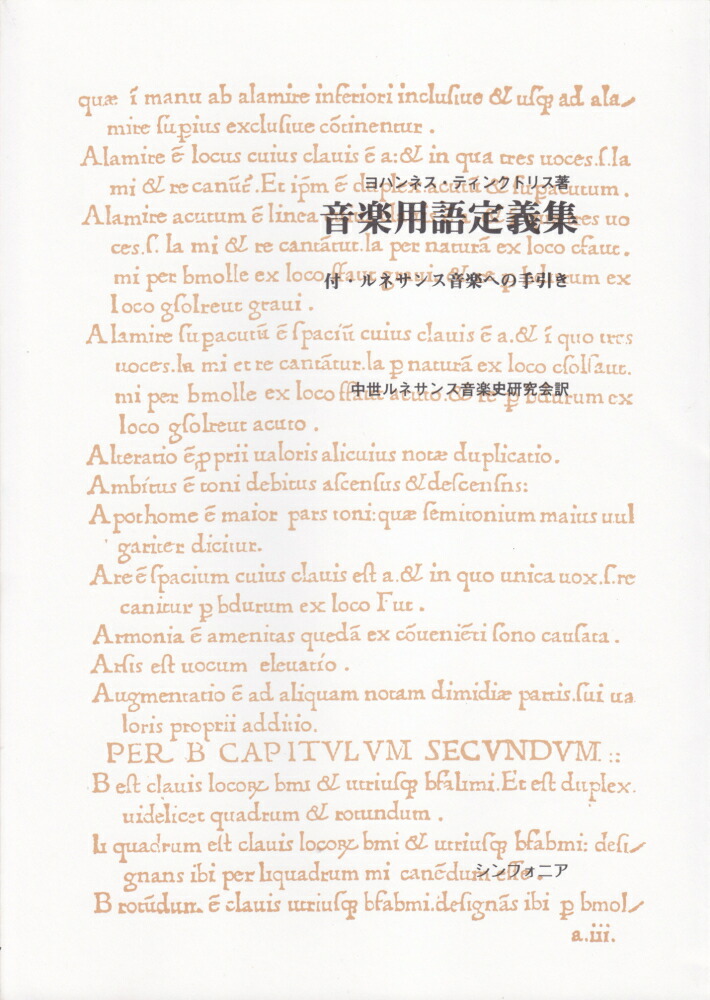 quæ ī manu ab alamire inferiori inclusiue & usqꝫ ad ala⸗
mire supius exclusiue cōtinentur .
Alamire ē locus cuius clauis ē a:& in qua tres uoces.s.la
mi & re canūt̄.Et ipm̄ ē duplex.acutū & supacutum.
ヨハンネス・ティンクトリス著
Alamire acutum ē linea
音楽用語定義集
tres uo
ces.s. la mi & re cantātur.la per naturā ex loco cfaut.
mi per bmolle ex loco ffaut graui.& re ꝑ bdurum ex
付・ルネサンス音楽への手引き
loco gsolreut graui .
Alamire supacutū ē spaciū cuius clauis ē a.& ī quo tres
uoces.la mi et re cantātur.la ꝑ naturā ex loco csolfaut.
mi per bmolle ex loco ffaut acuto.& re ꝑ bdurum ex
中世ルネサンス音楽史研究会訳
loco gsolreut acuto .
Alteratio ē ꝓprii ualoris alicuius notæ duplicatio.
Ambitus ē toni debitus ascensus & descensns:
Apothome ē maior pars toni:quæ semitonium maius uul
gariter dicitur.
Are ē spacium cuius clauis est a.& in quo unica uox.s.re
canitur ꝑ bdurum ex loco Γut .
Armonia ē amenitas quedā ex cōueniēti sono causata .
Arsis est uocum eleuatio .
Augmentatio ē ad aliquam notam dimidiæ partis.sui ua
loris proprii additio.
PER B CAPITVLVM SECVNDVM ::
B est clauis locoꝝ bmi & utriusqꝫ bfabmi.Et est duplex.
uidelicet quadrum & rotundum .
♮ quadrum est clauis locoꝝ bmi & utriusqꝫ bfabmi: desi⸗
gnans ibi per ♮quadrum mi canēdum esse .
シンフォニア
B rotūdum ē clauis utriusqꝫ bfabmi.designās ibi ꝑ bmol⸗
a.iii.